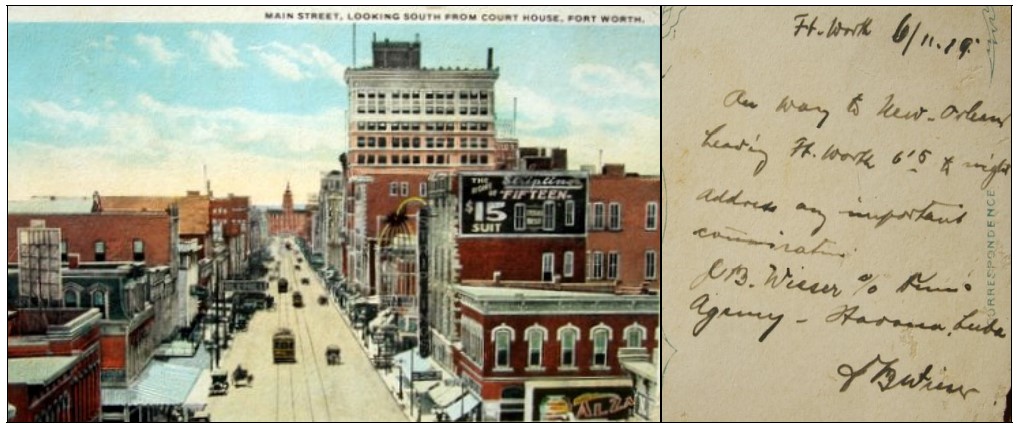 MAIN STREET, LOOKING SOUTH FROM COURT HOUSE, FORT WORTH.
THE HOME OF Striplings
"FIFTEEN"
$15
SUIT
ALZA
Ft. Worth 6/11.19.
On way to New-Orleans
Leaving Ft. Worth 6'5 to night
address any important
J. B. Wisser c/o
Agency - Havana, Cuba
J B Wisser
CORRESPONDENCE